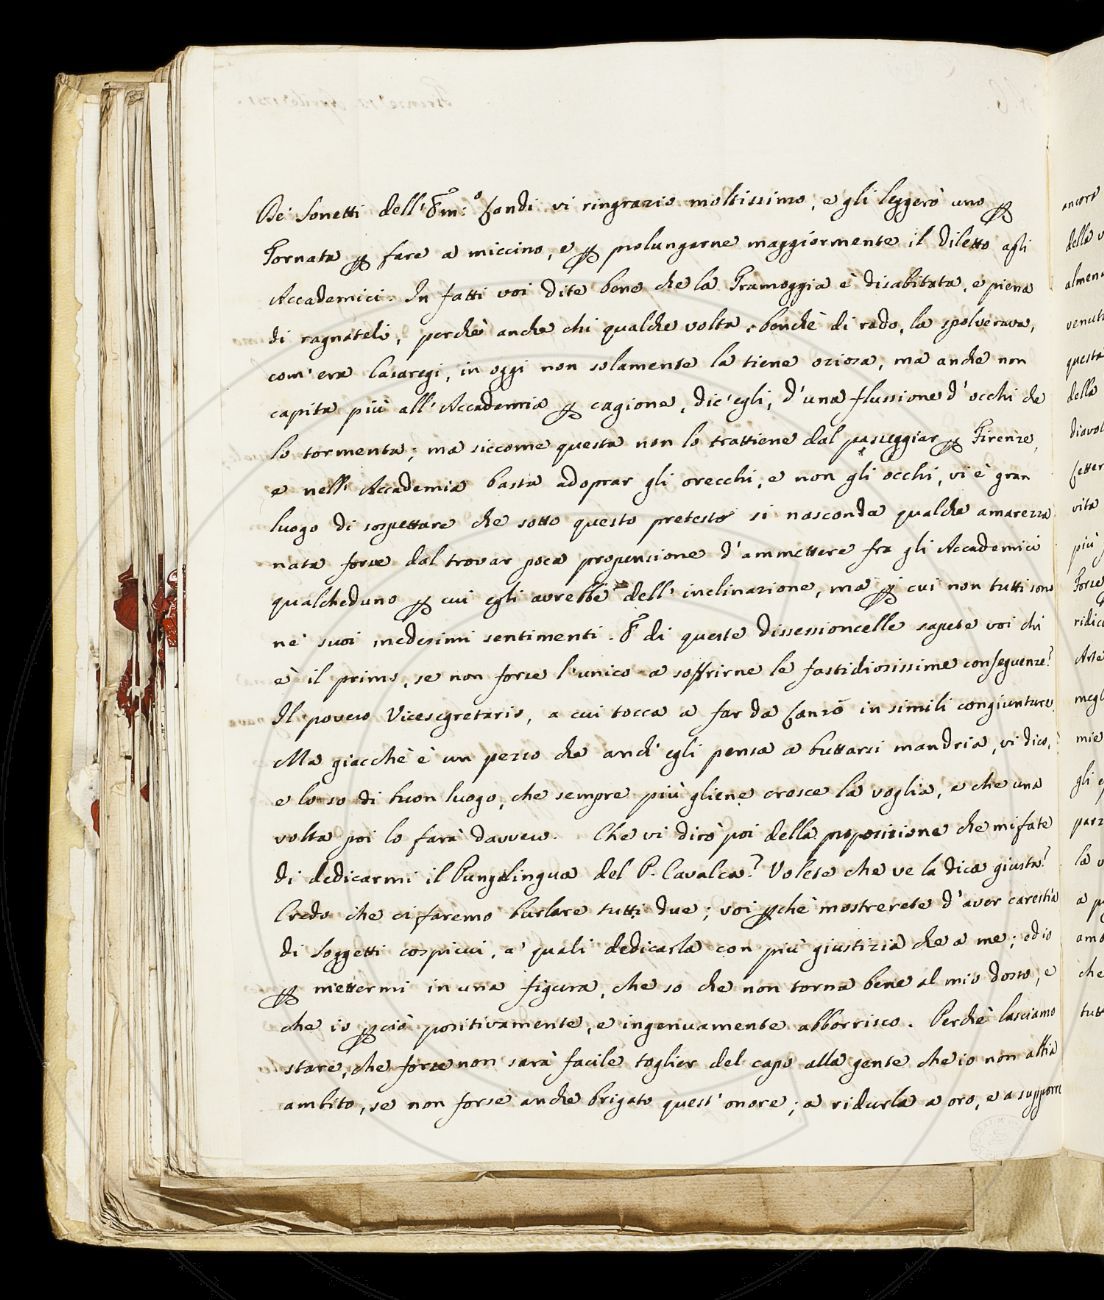 De' Sonetti dell' Em.º Fondi vi ringrazio moltissimo, e gli leggerò uno ꝑ
Tornata ꝑ fare a miccino, e ꝑ prolungarne maggiormente il diletto agli
Accademici. In fatti voi dite bene che la Tramoggia è disabitata, e piena
di ragnateli, perchè anche chi qualche volta, benchè di rado, la spolverava,
com' era Casaregi, in oggi non solamente la tiene oziosa, ma anche non
capita più all' Accademia ꝑ cagione, dic' egli, d' una flussione d' occhi che
lo tormenta; ma siccome questa non lo trattiene dal passeggiar ꝑ Firenze,
e nell' Accademia basta adoprar gli orecchi, e non gli occhi, vi è gran
luogo di sospettare che sotto questo pretesto si nasconda qualche amarezza
nata forse dal trovar poca propensione d' ammettere fra gli Accademici
qualcheduno ꝑ cui egli avrebbe dell' inclinazione, ma ꝑ cui non tutti sono
ne' suoi medesimi sentimenti. E di queste dissessioncelle sapete voi chi
è il primo, se non forse l' unico a soffrirne le fastidiosissime conseguenze?
Il povero Vicesegretario, a cui tocca a far da in simili congiunture.
Ma giacchè è un pezzo che anch' egli pensa a buttarsi mandria, vi dico,
e lo so di buon luogo, che sempre più gliene cresce la voglia, e che una
volta poi lo farà davvero. Che vi dirò poi della proposizione che mi fate
di dedicarmi il Pungilingua del P. Cavalca? Volete che ve la dica giusta?
Credo che ci faremo burlare tutti due; voi ꝑchè mostrerete d' aver carestia
di soggetti cospicui, a' quali dedicarla con più giustizia che a me; ed io
ꝑ mettermi in una figura, che so che non torna bene al mio dosso, e
che io ꝑciò positivamente, e ingenuamente abborrisco. Perchè lasciamo
stare, che forse non sarà facile toglier del capo alla gente che io non abbia
ambito, se non forse anche brigato quest' onore; a ridurla a oro, e a supporre